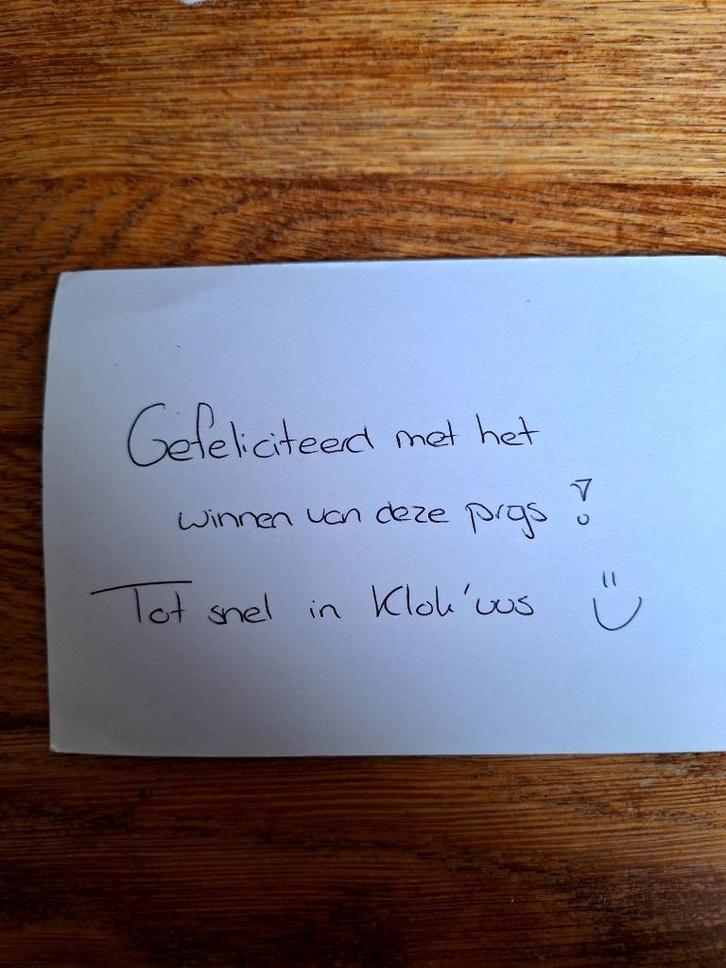 Gefeliciteerd met het
winnen van deze prys!
Tot snel in Klok'uus